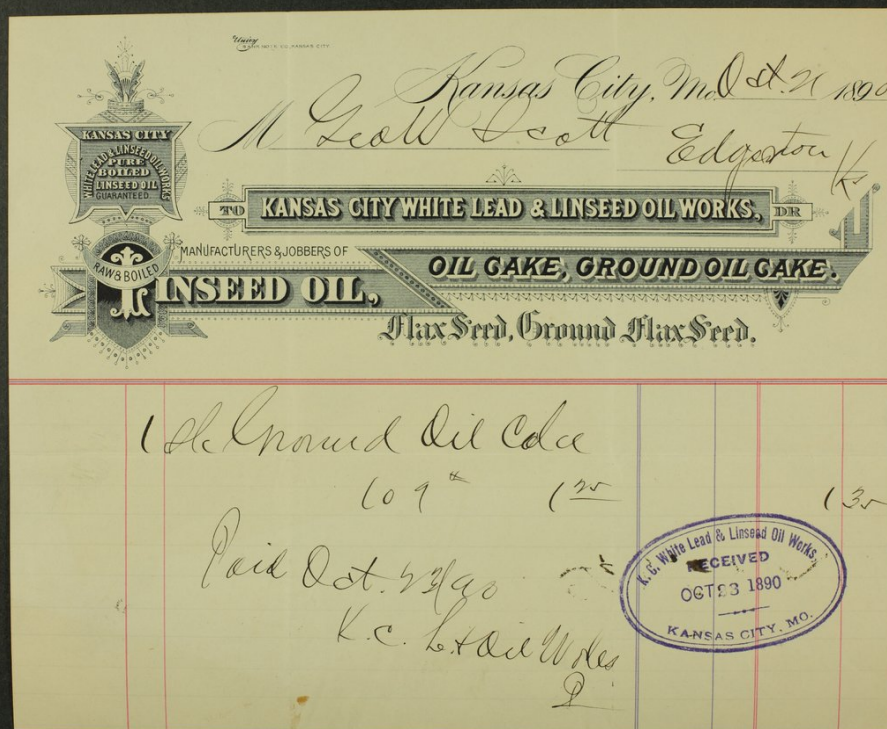 Kansas City, Mo. Oct. 21 1890
M Geo W Scott
Edgerton Ks
KANSAS CITY
WHITE LEAD & LINSEED OIL WORKS
PURE
BOILED
LINSEED OIL
GUARANTEED
TO KANSAS CITY WHITE LEAD & LINSEED OIL WORKS, DR
MANUFACTURERS & JOBBERS OF
RAW & BOILED
LINSEED OIL,
OIL CAKE, GROUND OIL CAKE.
Flax Seed, Ground Flax Seed.
1 Ground Oil Cake
109 # 1 25 1 35
Paid Oct. 23/90
K. C. Oil Works
K. C. White Lead & Linseed Oil Works,
RECEIVED
OCT 23 1890
KANSAS CITY, MO.